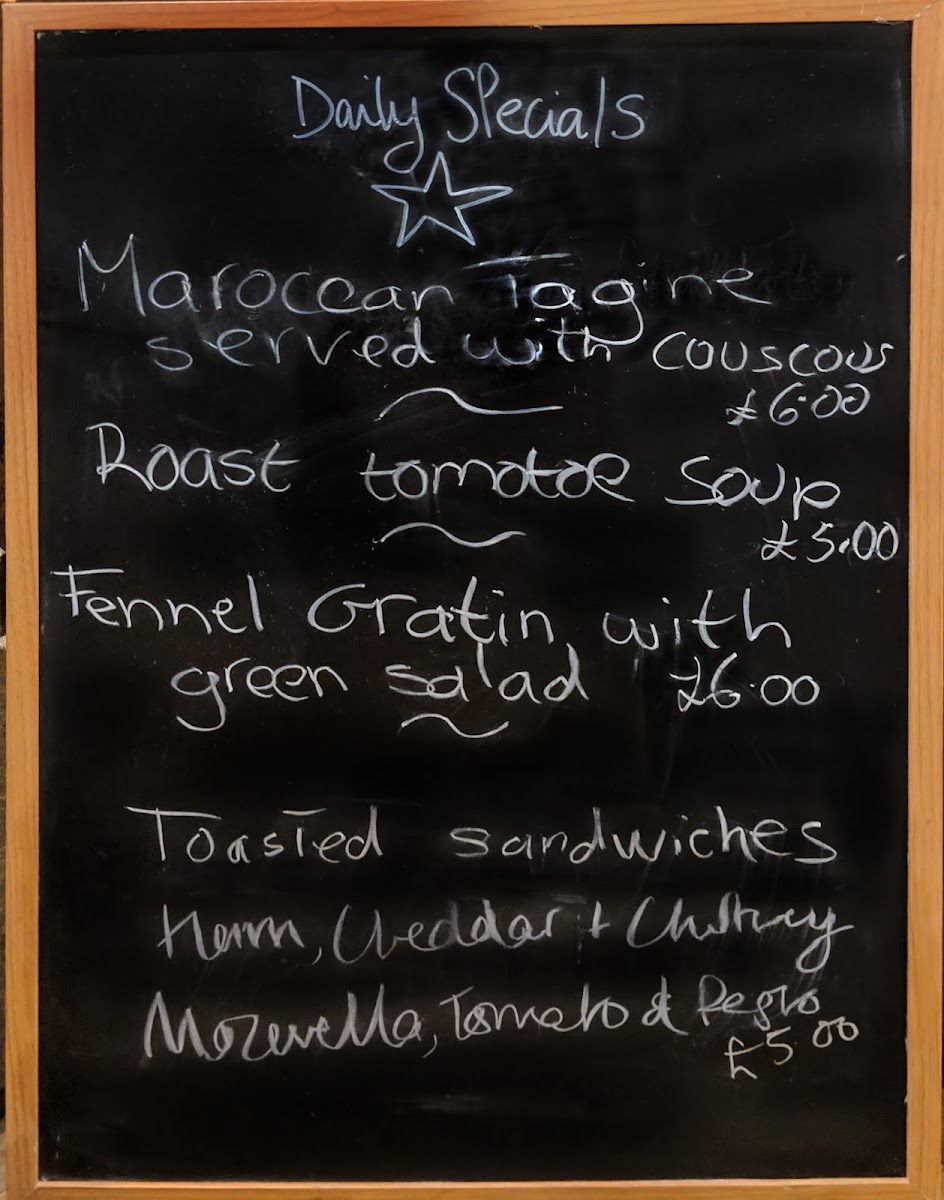 Daily Specials
Maroccan Tagine
served with couscous
£6.00
Roast tomatoe soup
£5.00
Fennel Gratin with
green salad £6.00
Toasted sandwiches
Ham, Cheddar + Chutney
Mozerella, Tomato & Pesto
£5.00